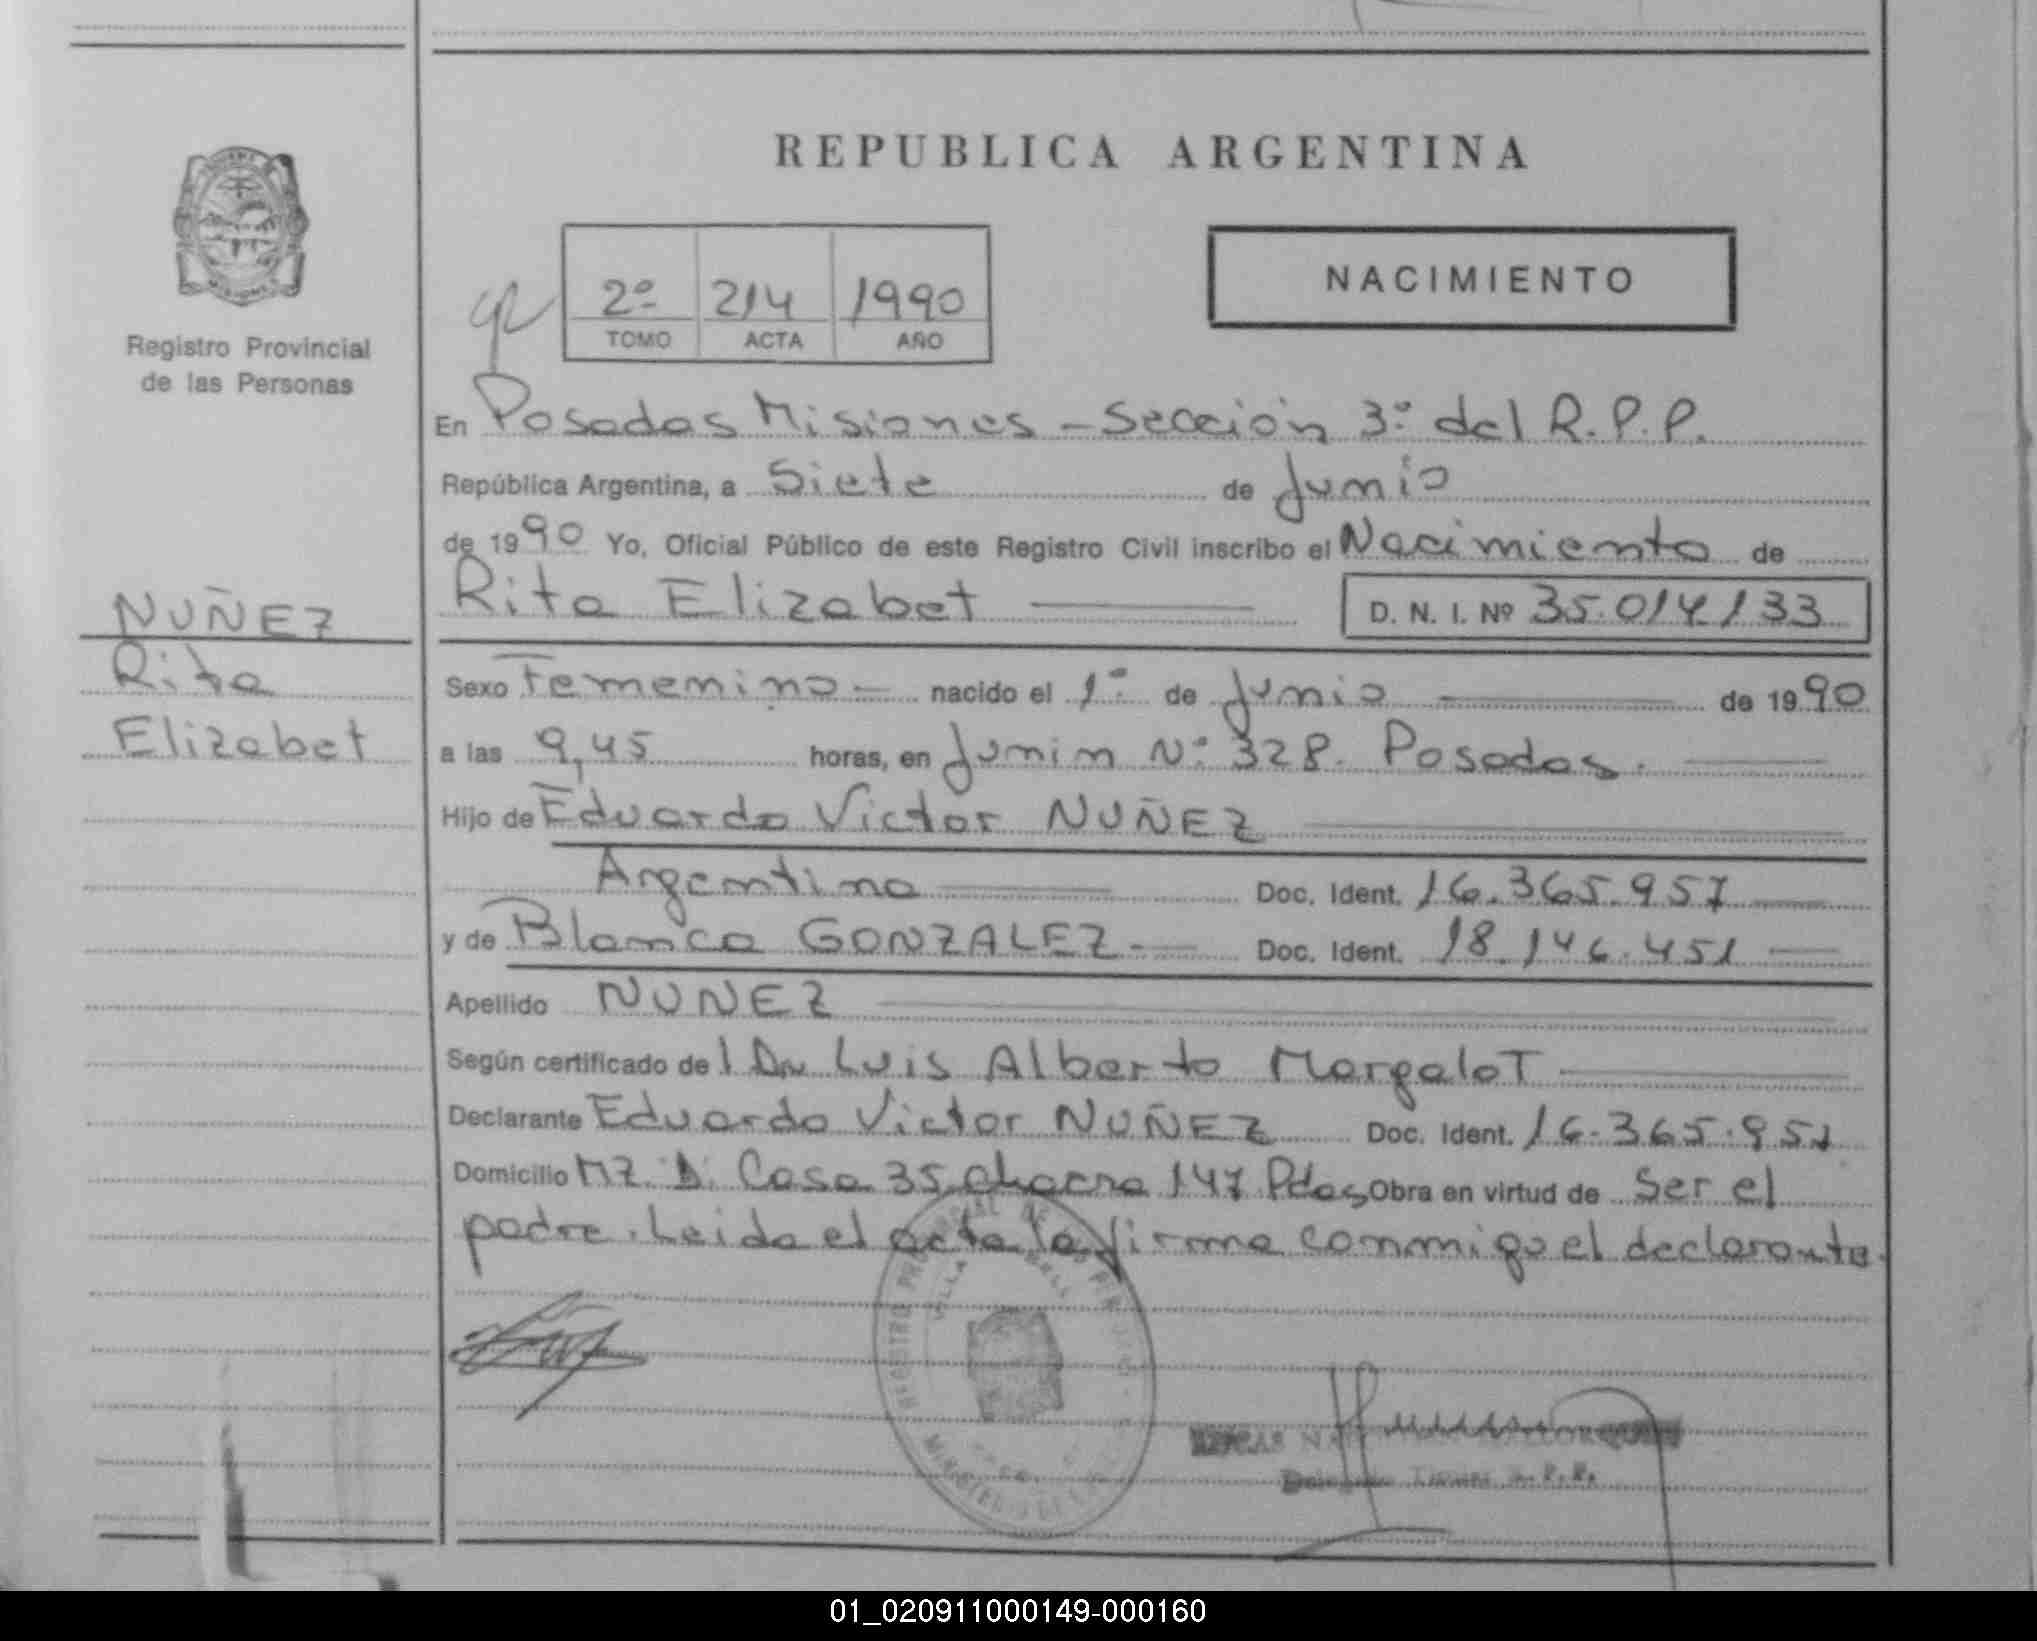 REPUBLICA ARGENTINA
Registro Provincial
de las Personas
2º 214 1990
TOMO ACTA AÑO
NACIMIENTO
En Posadas Misiones - Sección 3º del R.P.P.
República Argentina, a Siete de Junio
de 1990 Yo, Oficial Público de este Registro Civil inscribo el Nacimiento de
Rita Elizabet D. N. I. Nº 35.014133
NUÑEZ
Rita
Elizabet
Sexo Femenino nacido el 1º de Junio de 1990
a las 9,45 horas, en Junin Nº 328. Posadas.
Hijo de Eduardo Victor NUÑEZ
Argentino Doc. Ident. 16.365.957
y de Blanca GONZALEZ Doc. Ident. 18.146.451
Apellido NUNEZ
Según certificado del Dr Luis Alberto Margalot
Declarante Eduardo Victor NUÑEZ Doc. Ident. 16.365.957
Domicilio MZ. D. Casa 35 chacra 147 Pdas Obra en virtud de Ser el
padre. Leida el acta la firma conmigo el declarante.
REGISTRO PROVINCIAL DE LAS
VILLA
MISIONES
R.P.P.
01_020911000149-000160